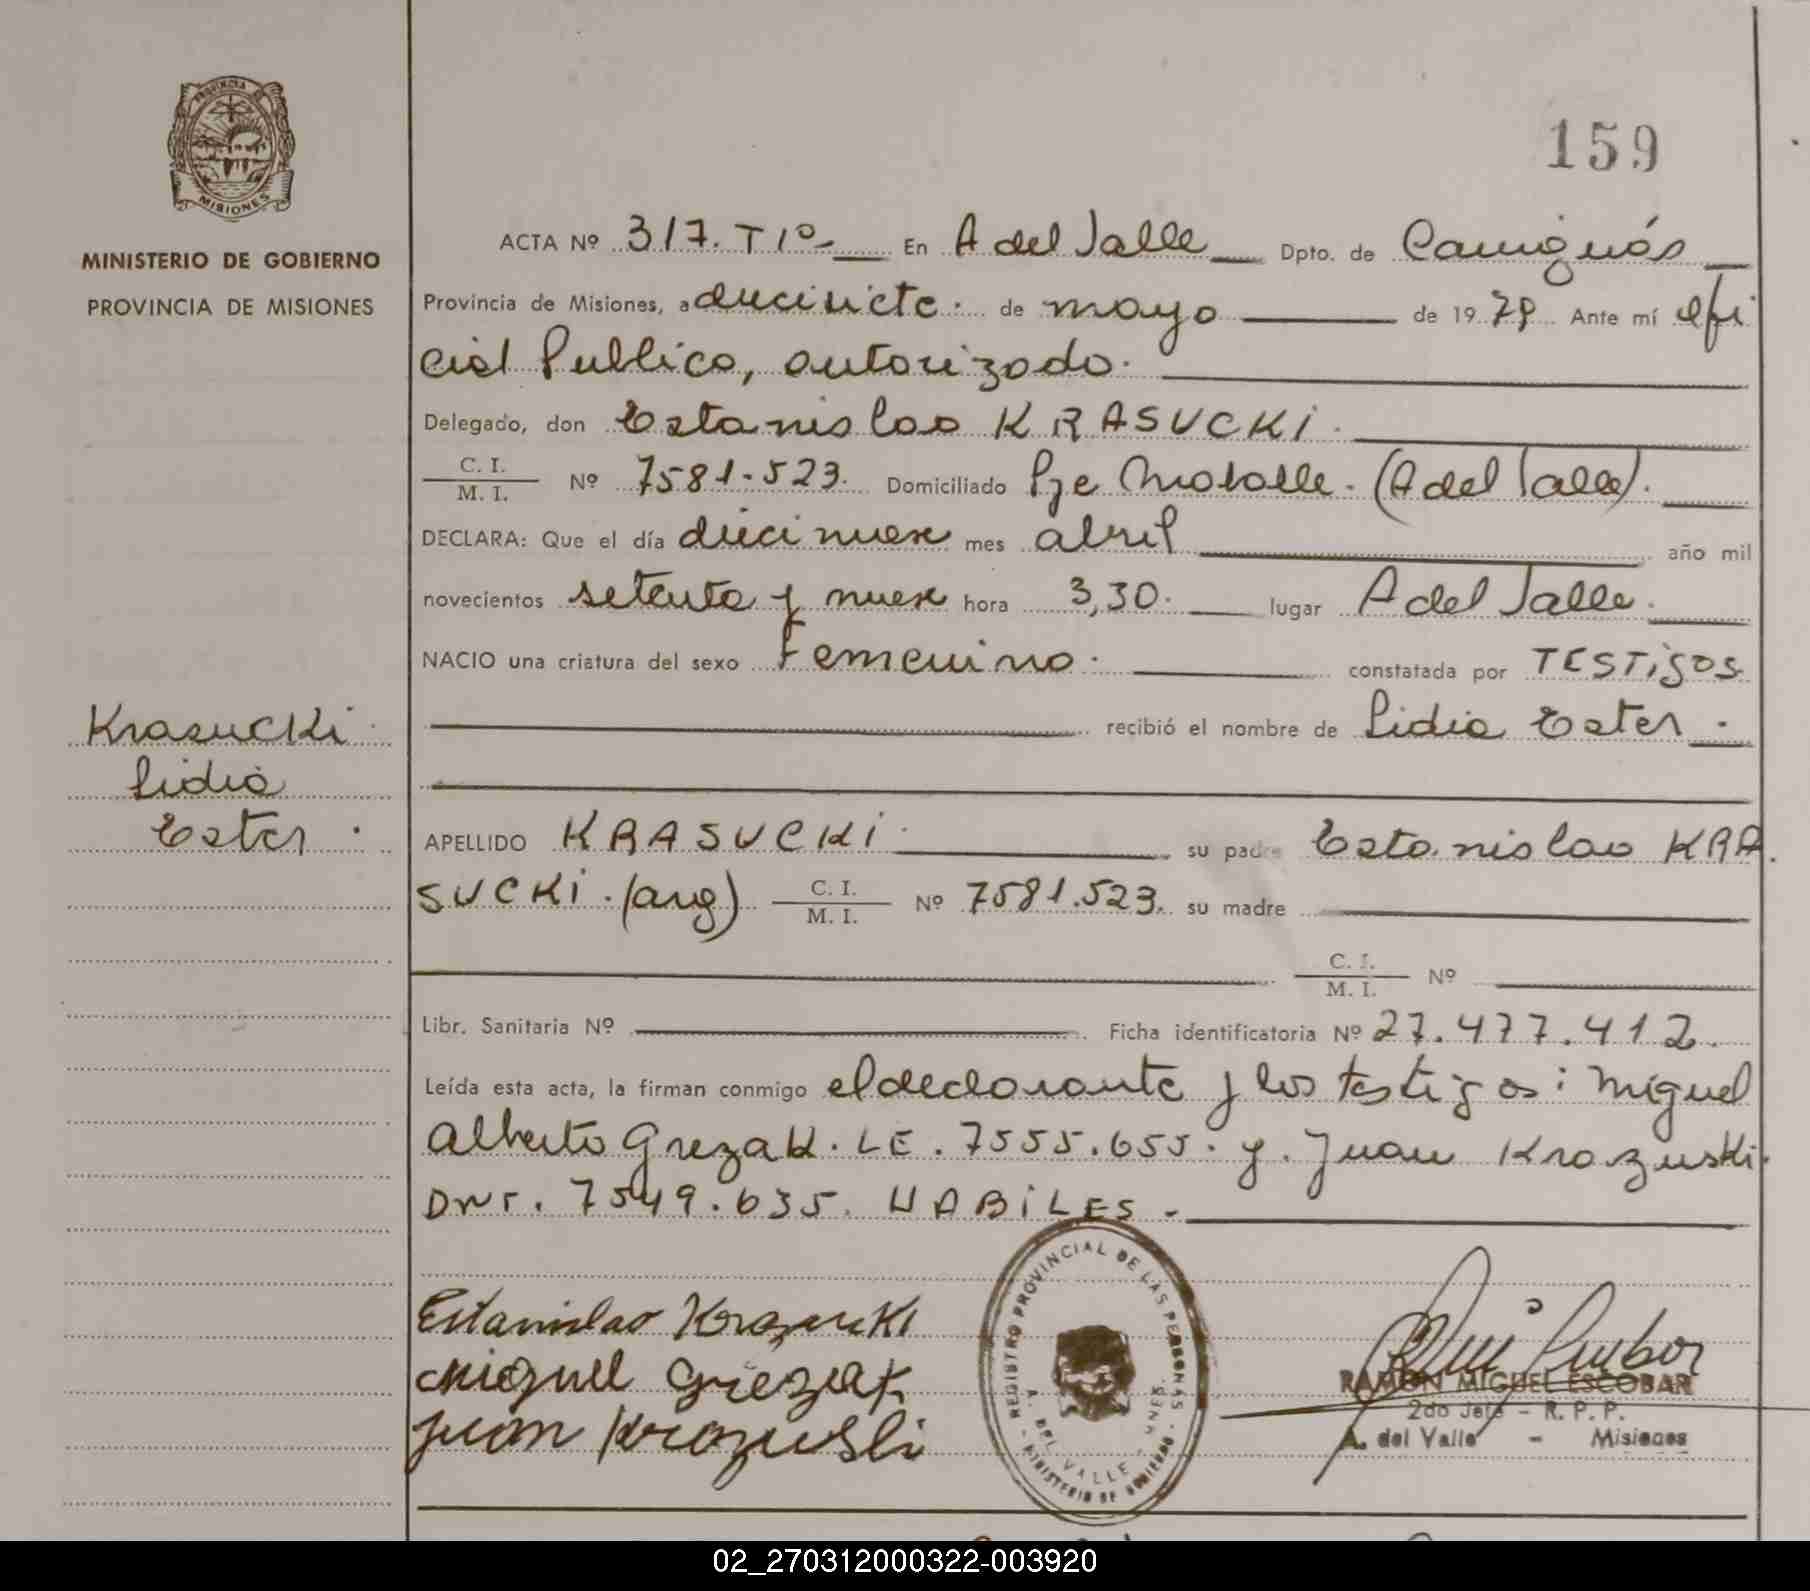 PROVINCIA DE
MISIONES
MINISTERIO DE GOBIERNO
PROVINCIA DE MISIONES
Krasucki
Lidia
Ester.
159
ACTA Nº 317. T 1º- En A del Valle Dpto. de Cainguás
Provincia de Misiones, a diecisiete. de mayo de 1979 Ante mí ofi
cial Publico, autorizado.
Delegado, don Estanislao KRASUCKi.
C. I.
M. I. Nº 7581.523. Domiciliado Pje (A del Valle).
DECLARA: Que el día diecinueve mes abril año mil
novecientos setenta y nueve hora 3,30. lugar A del Valle.
NACIO una criatura del sexo Femenino. constatada por TESTigos
recibió el nombre de Lidia Ester.
APELLIDO KRASUCKi. su padre Estanislao KRA
SUCKi. (arg) C. I.
M. I. Nº 7581.523. su madre
C. I.
M. I. Nº
Libr. Sanitaria Nº Ficha identificatoria Nº 27.477.412.
Leída esta acta, la firman conmigo el declarante y los testigos: Miguel
Alberto Grezak. LE. 7555.655. y. Juan Krazuski.
DNI. 7549.635. HABiLES.-
Estanislao Krasucki
Miguel Grezak
Juan Krazuski
REGISTRO PROVINCIAL DE LAS PERSONAS
A. DEL VALLE - MNES.
- MINISTERIO DE GOBIERNO -
RAMON MIGUEL ESCOBAR
2do Jefe - R. P. P.
A. del Valle - Misiones
02_270312000322-003920